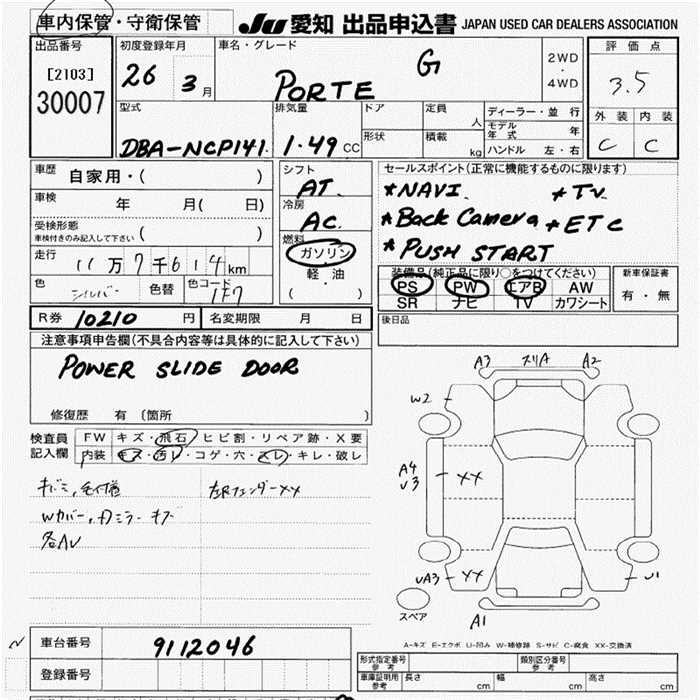 車内保管・守衛保管
JU 愛知 出品申込書 JAPAN USED CAR DEALERS ASSOCIATION
出品番号
[2103]
30007
初度登録年月
26 3月
車名・グレード
PORTE G
2WD
・
4WD
評価点
3.5
外装 内装
C C
型式
DBA-NCP141
排気量
1.49cc
ドア
形状
定員
人
積載
kg
ディーラー・並行
モデル年式 年
ハンドル 左・右
車歴
自家用・( )
車検
年 月( 日)
受検形態
車検付きのみ記入して下さい ( )
走行
11万7千614km
色
シルバー
色替
色コード
1F7
シフト
AT.
冷房
AC.
燃料
ガソリン
・
軽・油
( )
セールスポイント(正常に機能するものに限ります)
*NAVI. *TV.
*Back Camera *ETC
*PUSH START
装備品(純正品に限り○をつけてください)
PS PW エアB AW
SR ナビ TV カワシート
新車保証書
有・無
R券 10210 円 名変期限 月 日
後日品
注意事項申告欄(不具合内容等は具体的に記入して下さい)
POWER SLIDE DOOR
修復歴 有 〔箇所 〕
検査員記入欄
FW キズ・飛石・ヒビ割・リペア跡・X要
内装 キズ・汚レ・コゲ・穴・スレ・キレ・破レ
Wカバー、Fミラーキズ
各AU
左Rフェンダーxx
A3 スリA A2
W2
A4
U3
XX
UA3 XX
U1
スペア
A1
A-キズ E-エクボ U-凹み W-補修跡 S-サビ C-腐食 XX-交換済
車台番号 9112046
登録番号
形式指定番号
参考
類別区分番号
参考
車庫証明用
参考
長さ cm 幅 cm 高さ cm